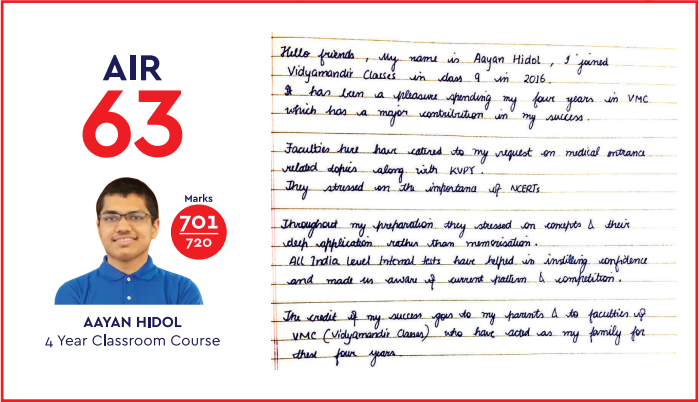 AIR
63
Marks
701
720
AAYAN HIDOL
4 Year Classroom Course
Hello friends, My name is Aayan Hidol, I joined
Vidyamandir Classes in class 9 in 2016.
It has been a pleasure spending my four years in VMC
which has a major contribution in my success.
Faculties here have catered to my request on medical entrance
related topics along with KVPY.
They stressed on the importance of NCERTs
Throughout my preparation they stressed on concepts & their
deep application rather than memorisation.
All India Level Internal tests have helped in instilling confidence
and made us aware of current pattern & competition.
The credit of my success goes to my parents & to faculties of
VMC (Vidyamandir Classes) who have acted as my family for
these four years.